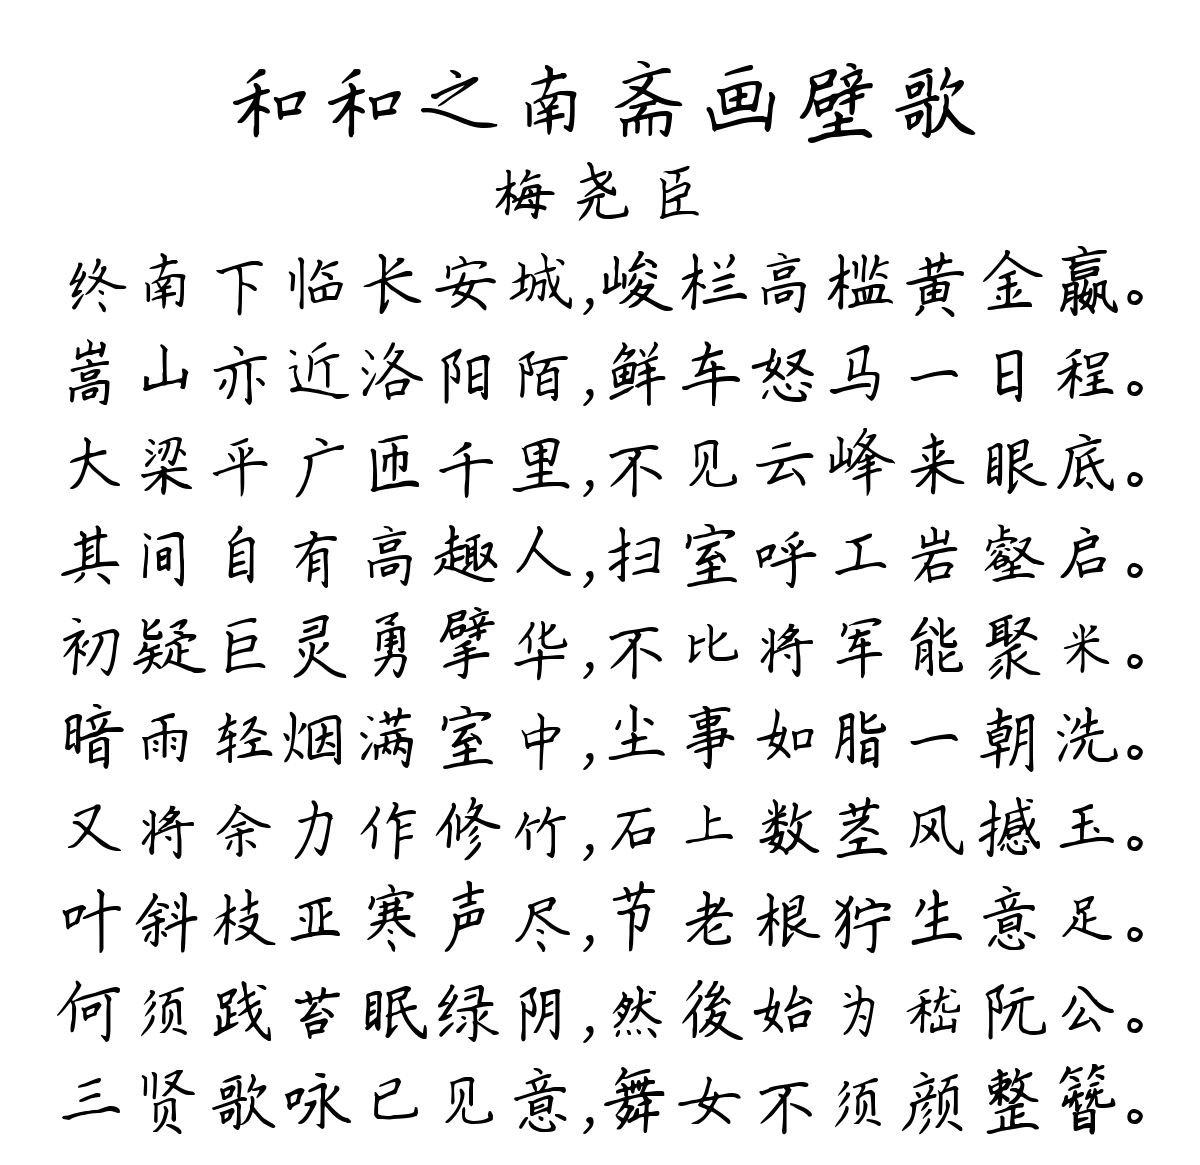 和和之南斋画壁歌
梅尧臣
终南下临长安城,峻栏高槛黄金嬴。
嵩山亦近洛阳陌,鲜车怒马一日程。
大梁平广匝千里,不见云峰来眼底。
其间自有高趣人,扫室呼工岩壑启。
初疑巨灵勇擘华,不比将军能聚米。
暗雨轻烟满室中,尘事如脂一朝洗。
又将余力作修竹,石上数茎风撼玉。
叶斜枝亚寒声尽,节老根狞生意足。
何须践苔眠绿阴,然後始为嵇阮公。
三贤歌咏已见意,舞女不须颜整簪。